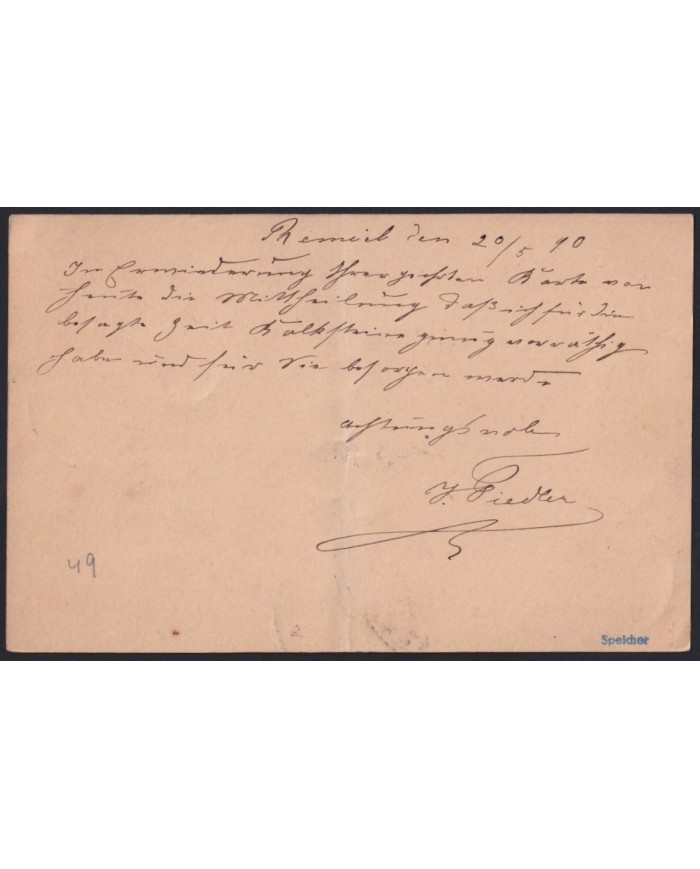 Remich den 20/5 90
In Erwiederung Ihrer geehrten Karte von
heute die Mittheilung daß ich für die
besagte Zeit Kalksteine genug vorräthig
habe und für Sie besorgen werde
achtungsvoll
J. Fiedler
49
Speicher